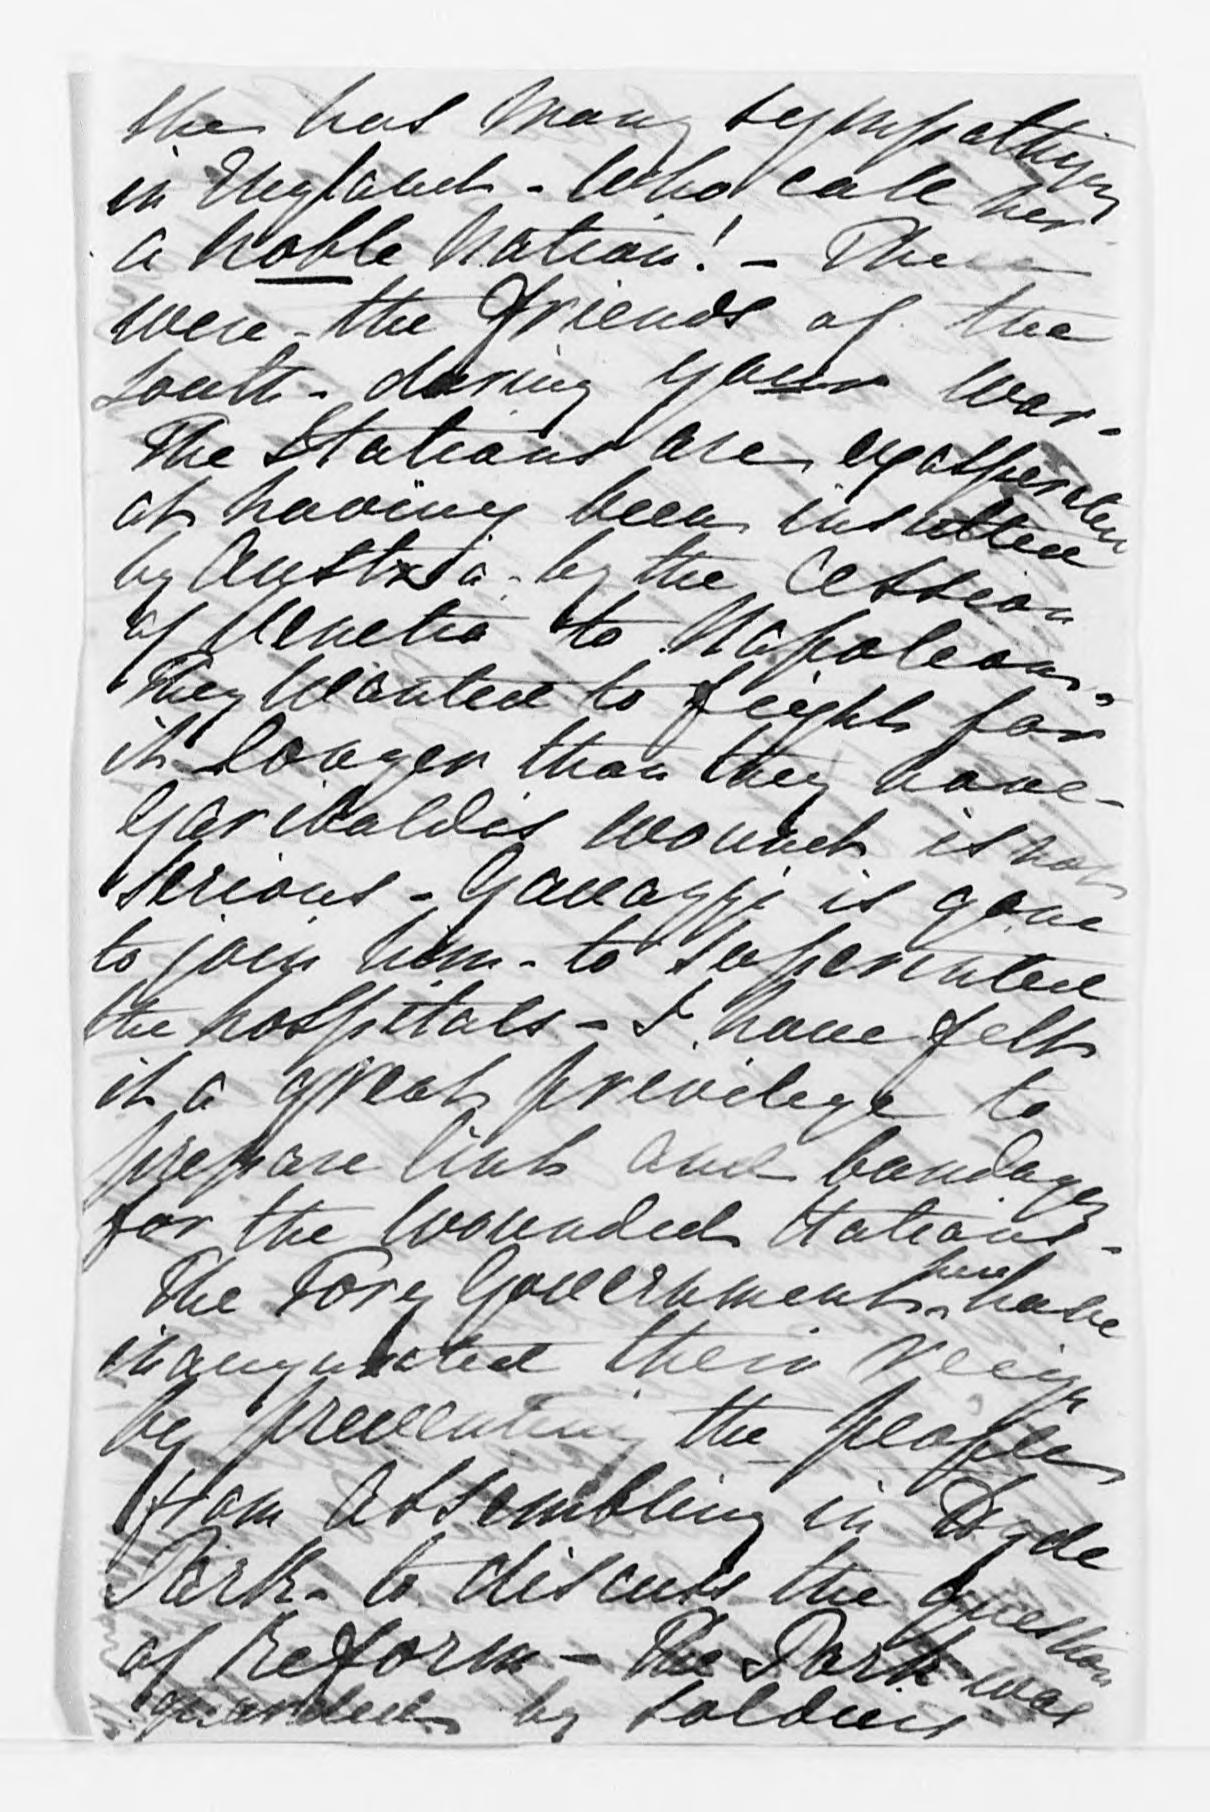 she has many sympathizers
in England - who call her
a noble Nation! - These
were - the friends of the
South - during your war -
The Italians are exasperated
at having been insulted
by Austria - by the Cession
of Venetia to Napoleon -
They wanted to fight for
it longer than they have -
Garibaldis wound is not
serious - Gavazzi is gone
to join him - to superintend
the hospitals - I have felt
it a great privilege to
prepare lint and bandages
for the wounded Italians -
The Tory Government here have
inaugurated their reign
by preventing the people
from assembling in Hyde
Park - to discuss the question
of Reform - The Park was
guarded by Soldiers